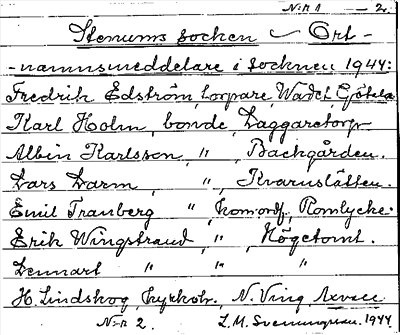 N:r 1 - 2.
Stenums socken - Ort-
-namnsmeddelare i socknen 1944:
Fredrik Edström, torpare, Wadet Götala
Karl Holm, bonde, Laggaretorp.
Albin Karlsson, " , Backgården.
Lars Larm, " , Kvarnslätten.
Emil Tranberg " , kom.ordf., Romlycke.
Erik Wingstrand, " , Högetomt.
Lennart " " "
H. Lindskog, kyrkoh., N. Ving
N:r 2. L. M. Svenungsson. 1944